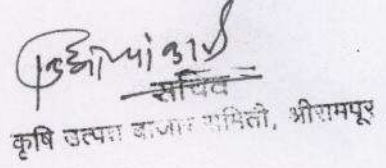 सचिव
कृषि उत्पन्न बाजार समिती, श्रीरामपूर